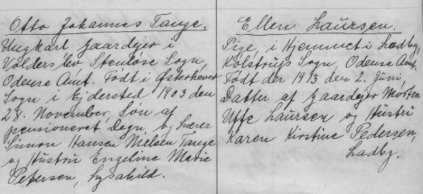 Otto Johannes Tange.
Ungkarl, Gaardejer i
Volderslev Stenløse Sogn,
Odense Amt. Født i
Sogn i Ejdersted 1903 den
28. November, Søn af
pensioneret Degn, og Lærer
Simon Hansen Nielsen Tange
og Hustru Engeline Marie
Petersen,
Ellen Laursen.
Pige, i Hjemmet i Ladby,
Kølstrup Sogn, Odense Amt,
Født der 1913 den 2. Juni,
Datter af Gaardejer Morten
Uffe Laursen og Hustru
Karen Kirstine Pedersen,
Ladby.